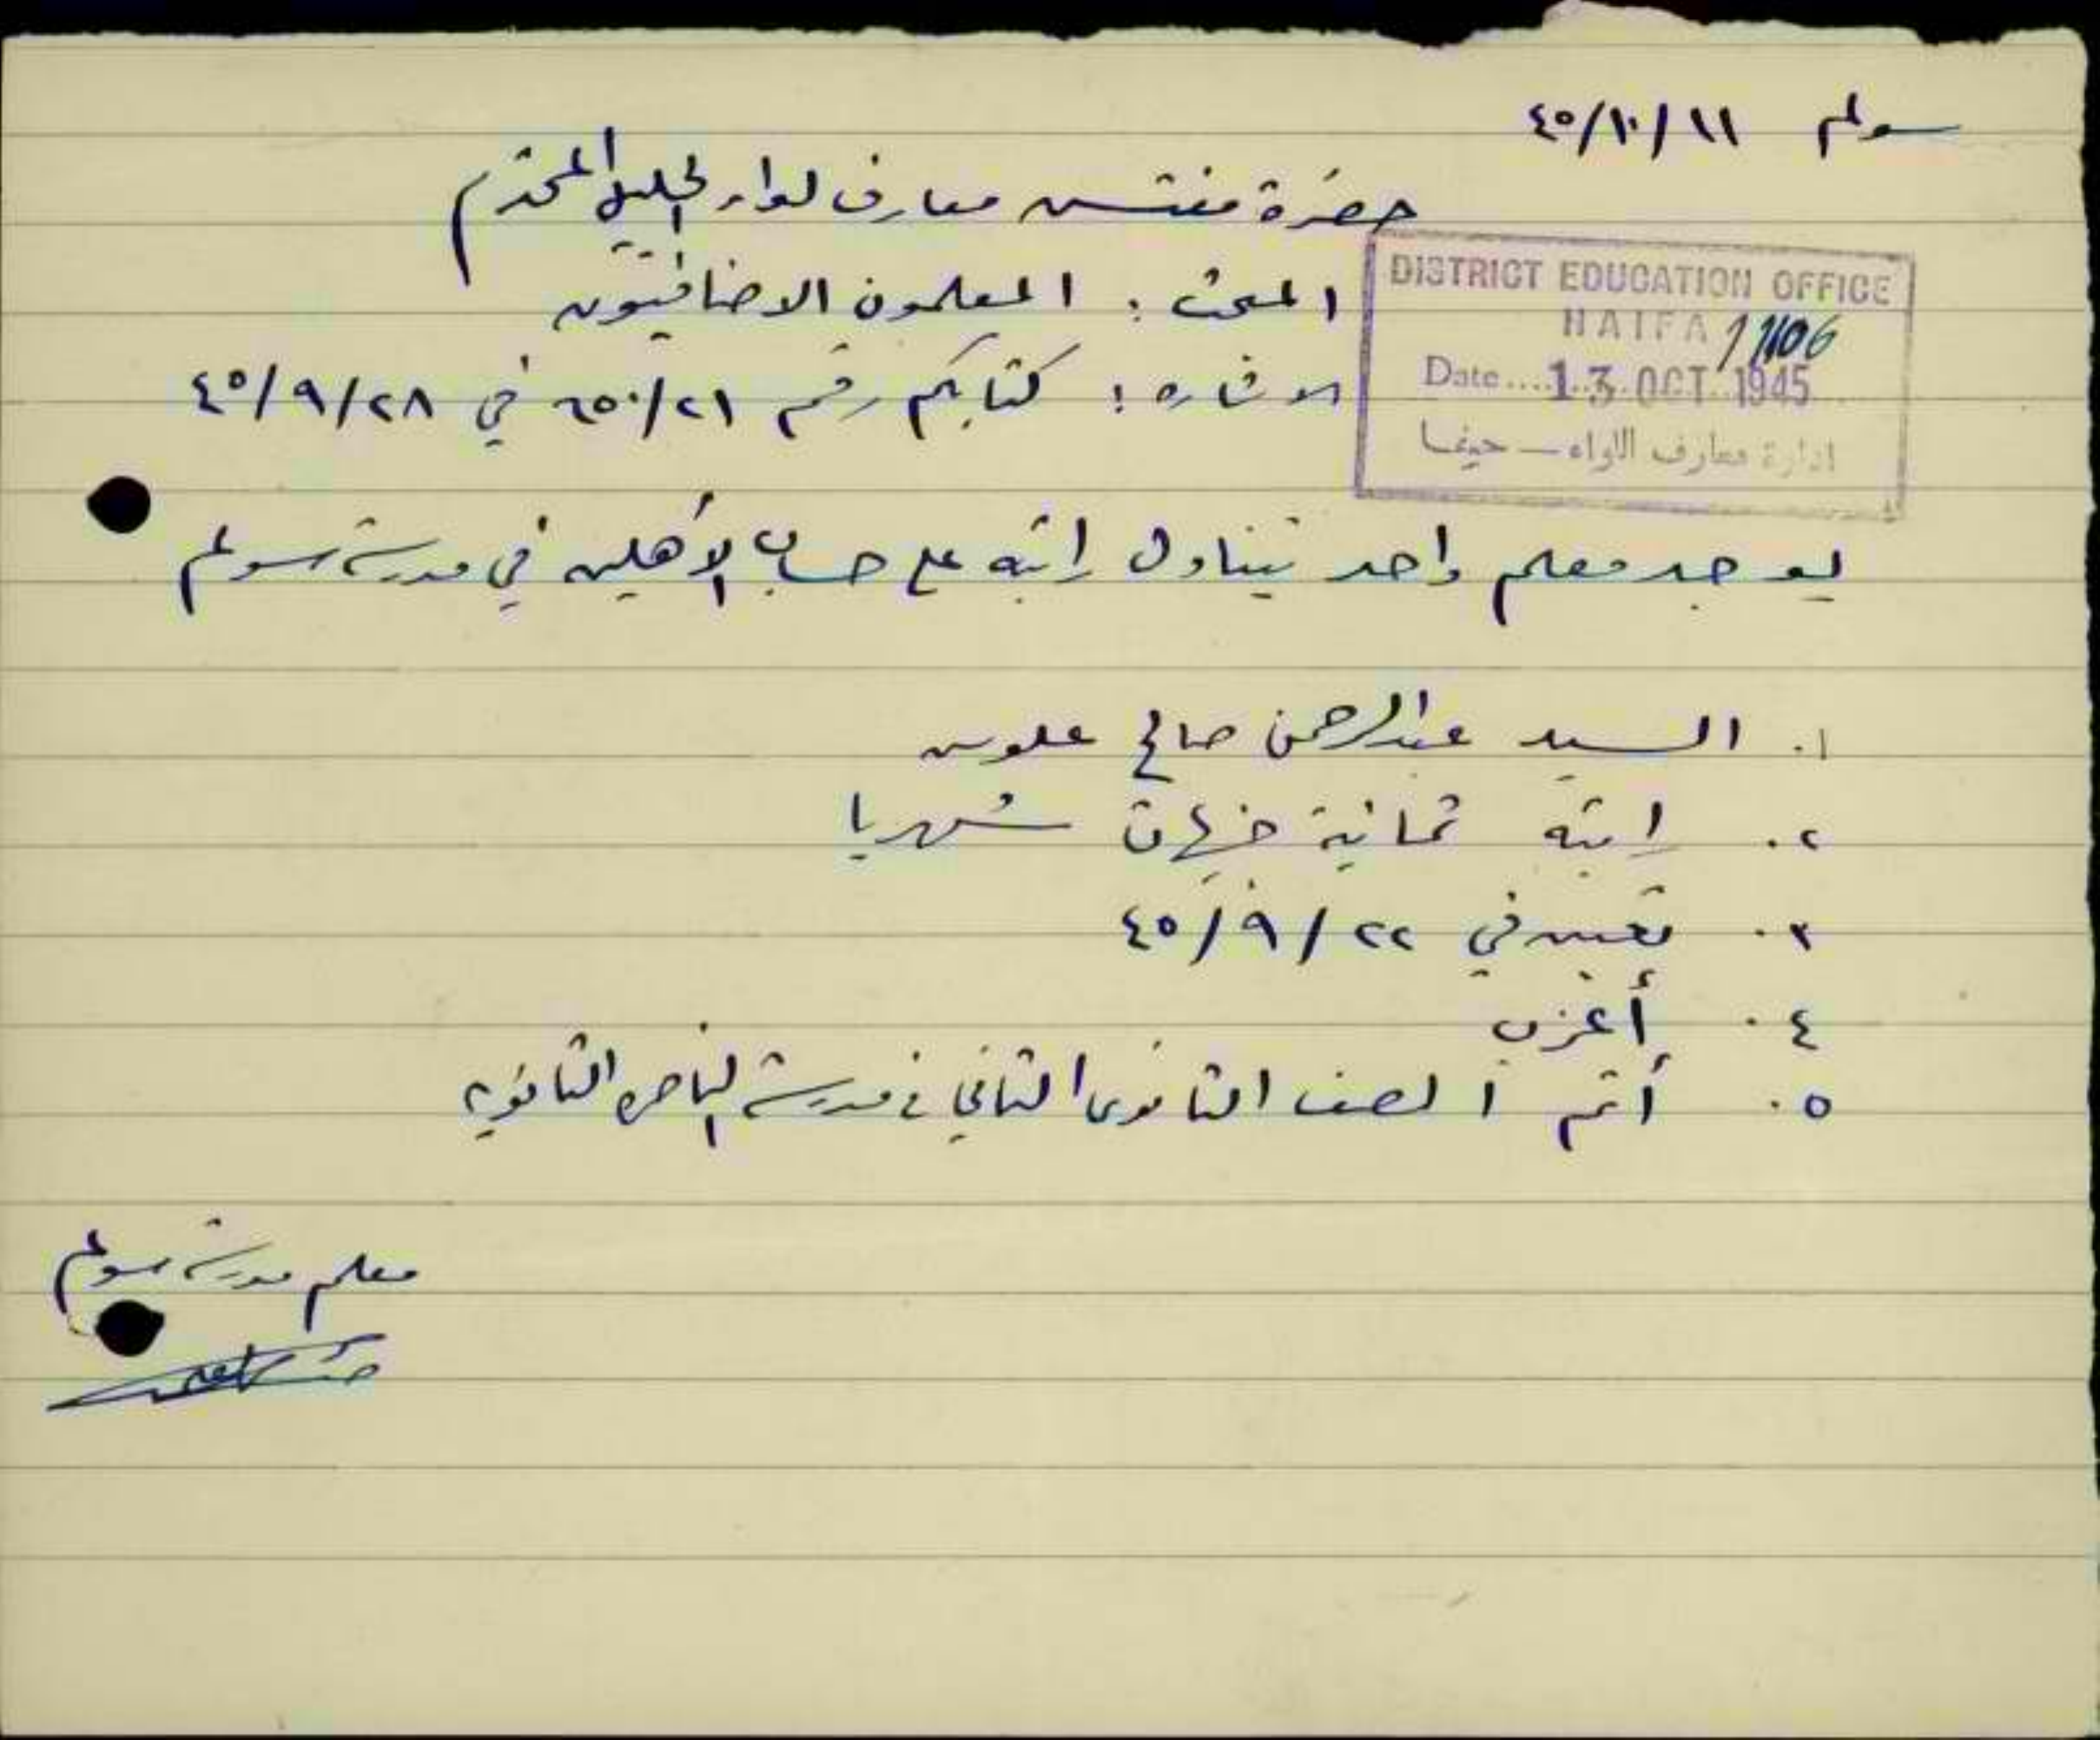 سولم ١١/١٠/٤٥
حضرة مفتش معارف لواء الجليل المحترم
المبحث : المعلمون الاضافيون
الاشارة : كتابكم رقم ٦٥٠/٢١ في ٢٨/٩/٤٥
DISTRICT EDUCATION OFFICE
HAIFA 11106
Date....13 OCT 1945
ادارة معارف اللواء – حيفا
يوجد معلم واحد يتناول راتبه على حساب الأهلين في مدرسة سولم
١. السيد عبد الرحمن صالح علوس
٢. راتبه ثمانية جنيهات شهريا
٣. تعين في ٢٢/٩/٤٥
٤. أعزب
٥. أتم الصف الثانوي الثاني في مدرسة الناصرة الثانوية
معلم مدرسة سولم